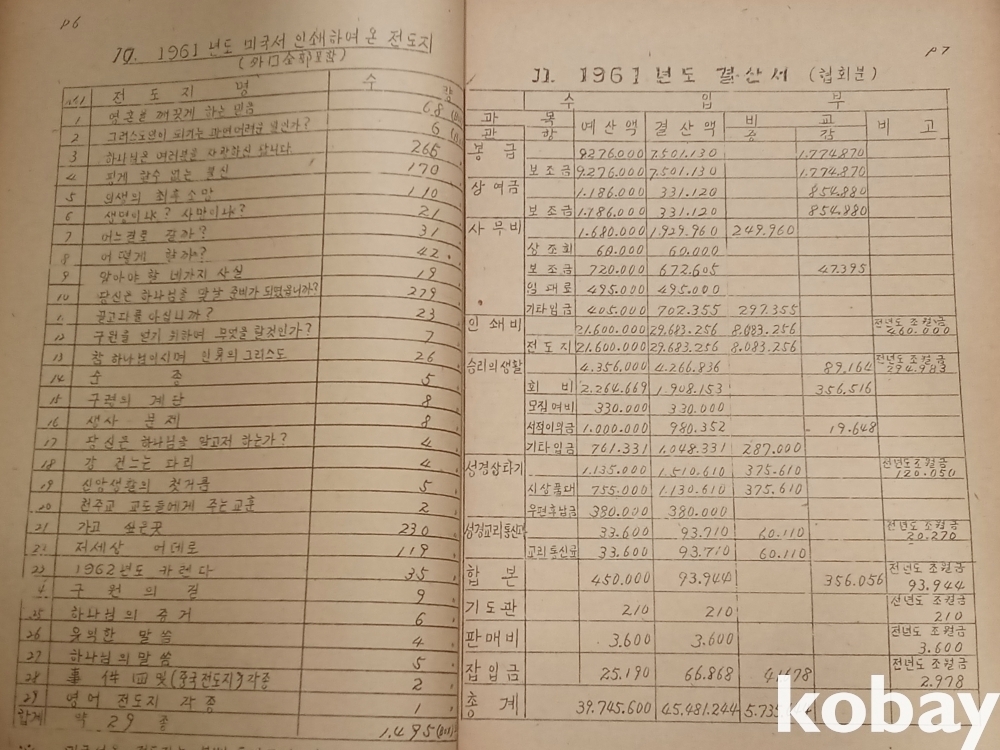 P6
10. 1961년도 미국서 인쇄하여 온 전도지
전 도 지 명 수 량
1 영혼을 깨끗게 하는 믿음 68
2 6
3 하나님은 여러분을 사랑하신 삽니다. 265
4 핑게 할수 없는 불신 170
5 의 최후 소망 110
6 생명이냐? 사망이냐? 21
7 어느길로 갈까? 31
8 어떻게 할까? 42
9 알아야 할 네가지 사실 19
10 당신은 하나님을 맞날 준비가 되였읍니까? 279
11 골고다를 아십니까? 23
12 구원을 얻기 위하여 무엇을 할것인가? 7
13 참 하나님이시며 인류의 그리스도 26
14 순 종 5
15 구원의 계단 8
16 생사 문제 8
17 당신은 하나님을 알고저 하는가? 4
18 강 건느는 다리 4
19 신앙생활의 첫거름 5
20 천주교 교도들에게 주는교훈 2
21 가고 싶은곳 230
저세상 어데로 119
22 1962년도 카렌다 35
구 원 의 길 9
25 하나님의 증거 6
26 유익한 말씀 4
27 하나님의 말씀 5
28 (중국전도지)각종 2
29 영어 전도지 각종 1
합계 약 29 종 1,495
P7
11. 1961년도 결산서 (협회분)
수 입 부
과 목 예산액 결산액 비 교 비 고
관 항 증 감
봉 금 9,276.000 7.501.130 1.774.870
보조금 9.276.000 7.501.130 1.774.870
상여금 1.186.000 331.120 854.880
보조금 1.186.000 331.120 854.880
사무비 1.680.000 1.929.960 249.960
상조회 60.000 60.000
보조금 720.000 672.605 47.395
임대로 495.000 495.000
기타입금 405.000 702.355 297.355
인쇄비 21.600.000 29.683.256 8.083.256 전년도 조월금 460.000
전도지 21.600.000 29.683.256 8.083.256
승리의생활 4.356.000 4.266.836 89.164 전년도조월금 294.983
회비 2.264.669 1.908.153 356.516
모직여비 330.000 330.000
서적이익금 1.000.000 980.352 19.648
기타입금 761.331 1.048.331 287.000
성경상타기 1.135.000 1.510.610 375.610 전년도조월금 120.050
시상품대 755.000 1.130.610 375.610
우편후납금 380.000 380.000
성경교리통신과 33.600 93.710 60.110 전년도조월금 20.270
교리통신료 33.600 93.710 60.110
합본 450.000 93.944 356.056 전년도 조월금 93.944
기도관 210 210 전년도 조월금 210
판매비 3.600 3.600 전년도 조월금 3.600
잡입금 25.190 66.868 41.678 전년도 조월금 2.978
총계 39.745.600 45.481.244
kobay